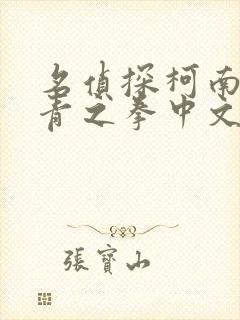 名偵探柯南
青之拳中文
張寶山